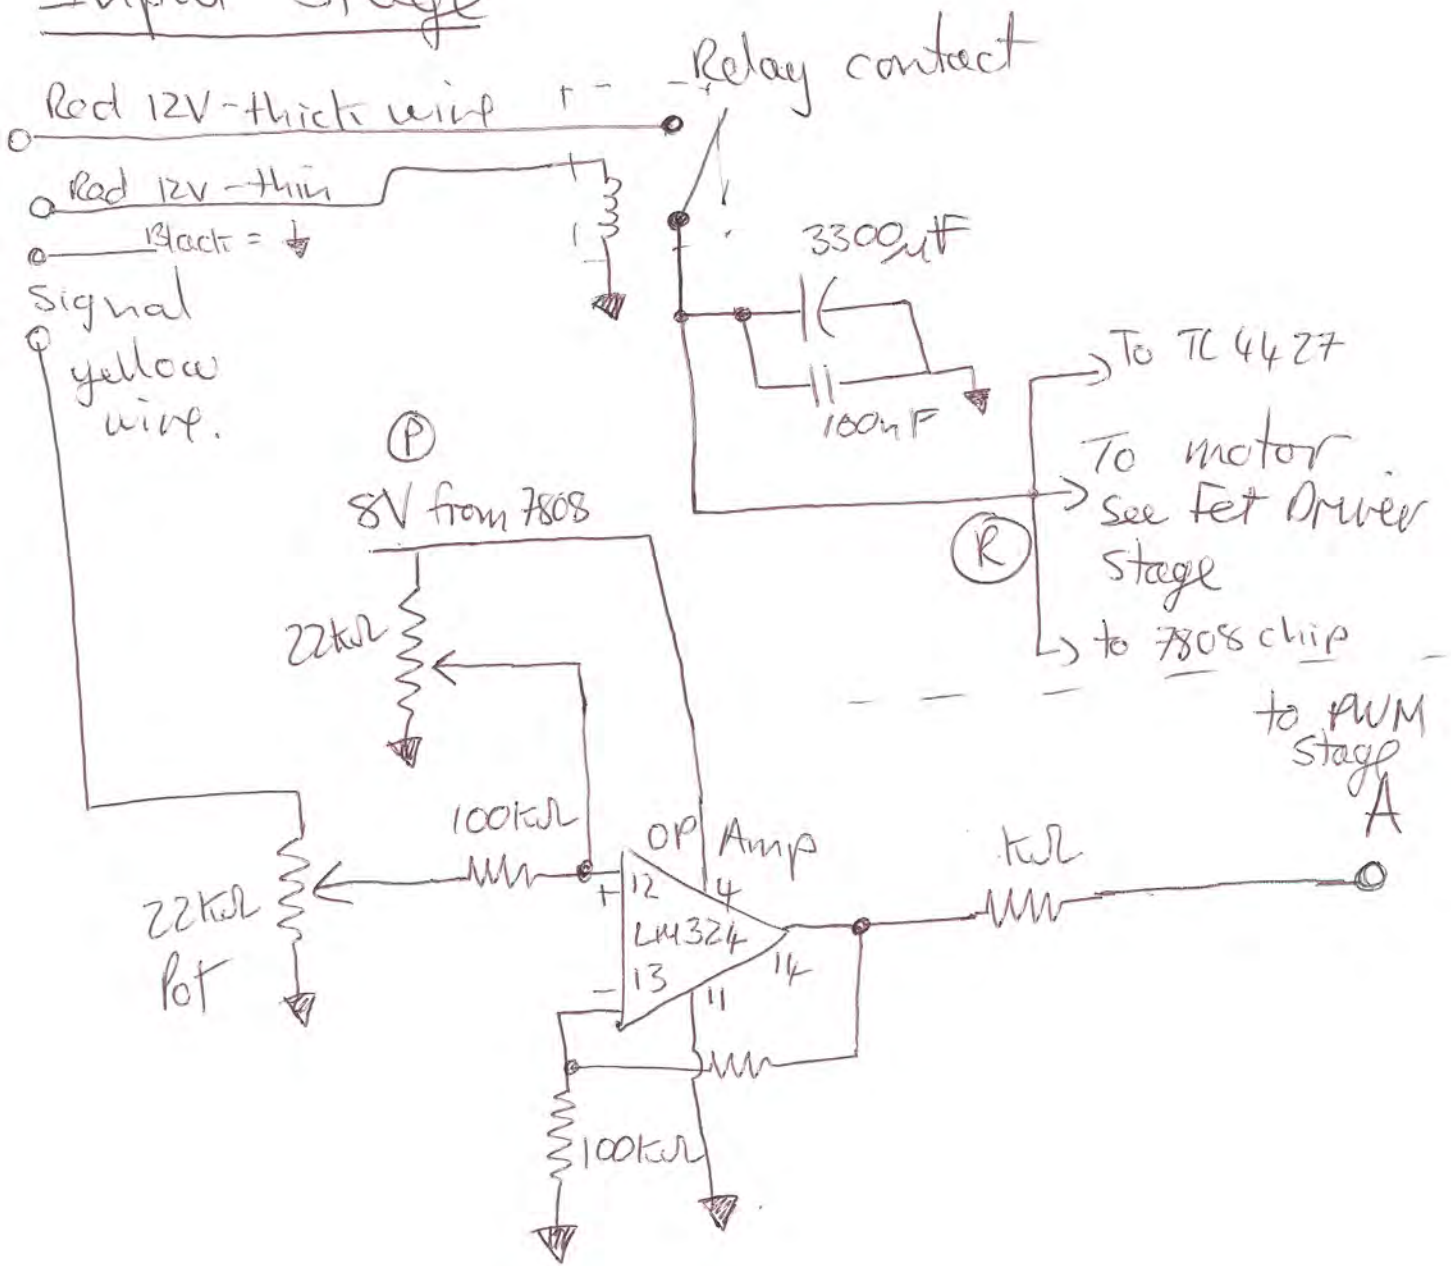 Input Stage
Relay contact
Red 12V-thick wire + - - +
Red 12V-thin
+
Black =
-
Signal
yellow
wire.
3300µF
100nF
To TC4427
To motor
See Fet Driver
Stage
R
to 7808 chip
P
8V from 7808
22kΩ
to PWM
stage
A
100kΩ
OP Amp
kΩ
22kΩ
Pot
+
12
4
LM324
14
-
13
11
100kΩ